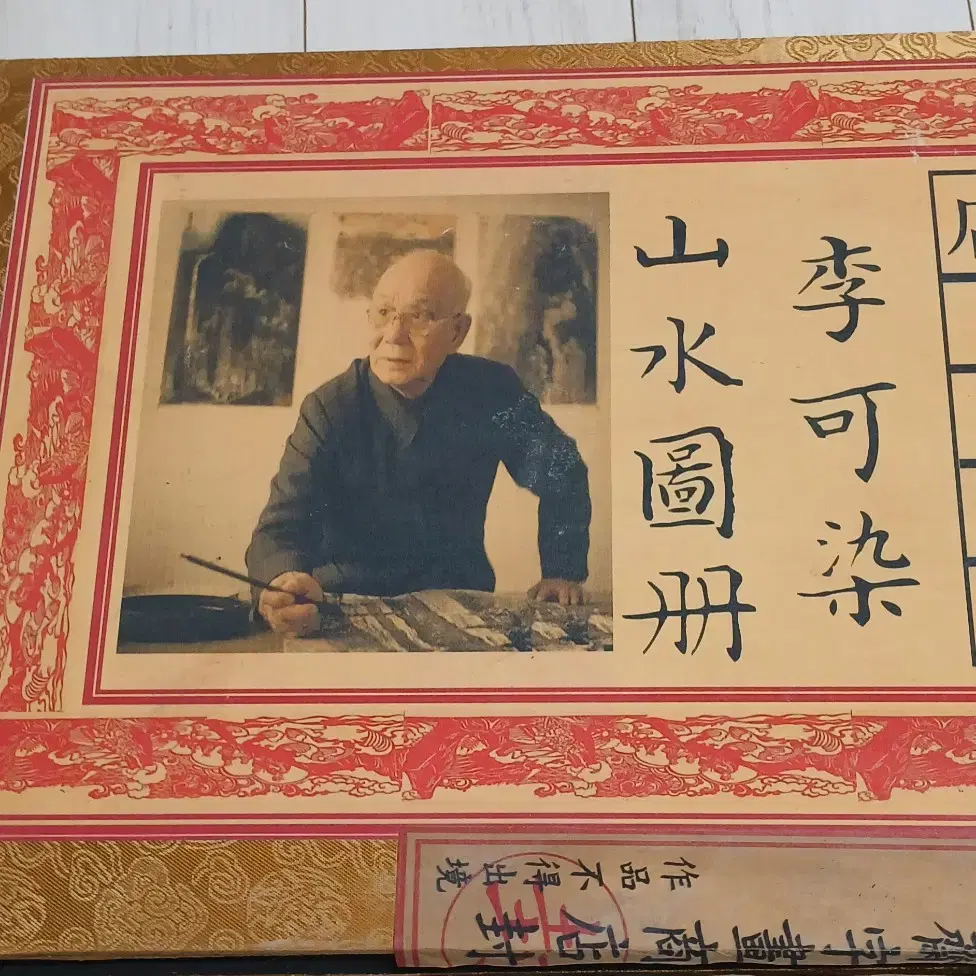 李可染
山水圖册
作品不得出境
字畫商店封